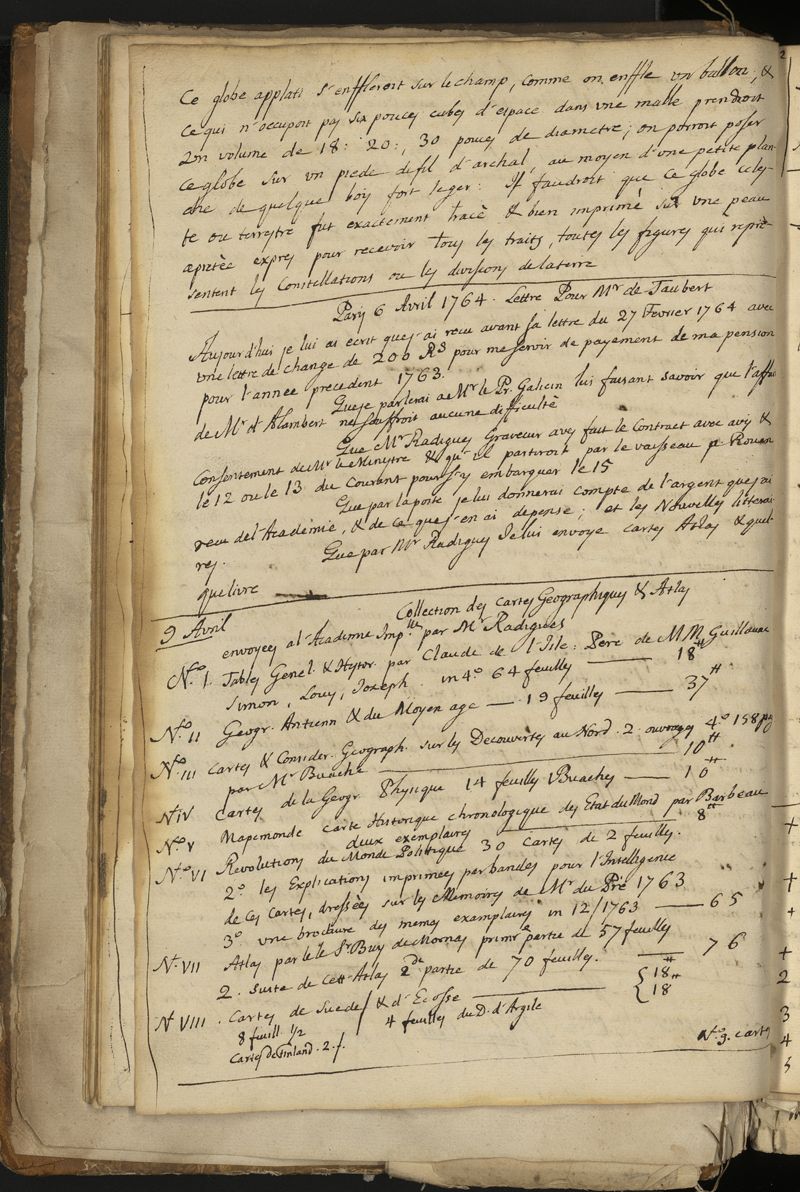 Ce globe applati s'enffleroit sur le champ, comme on enffle un ballon, &
ce qui n'occupoit pas six pouces cubes d'espace dans une malle prendroit
un volume de 18: 20:, 30 pouces de diametre; on porroit poser
ce globe sur un piede de fil d'archal, au moyen d'une petite plan-
che de quelque bois fort leger: Il faudroit que ce globe celes-
te ou terrestre fut exactement tracè & bien imprimé sur une peau
apretèe expres pour recevoir tous les traits, toutes les figures qui reprè-
sentent les Constellations ou les divisions de la terre
Paris 6 Avril 1764. Lettre Pour Mr de Taubert
Aujourd'hui je lui ai ecrit que j'ai recu avant sa lettre du 27 Fevrier 1764 avec
une lettre de change de 200 Rs pour me servir de payement de ma pension
pour l'annee precedent 1763.
Que je parlerai a Mr le Pr. Galicin lui faisant savoir que l'affai
de Mr d'Alambert ne souffroit aucune difficultè
Que Mr Radigues Graveur aves fait le Contract avec avis &
Consentement de Mr le Ministre & qu'il partiroit par le vaisseau p. Rouan
le 12 ou le 13 du Courant pour s'y embarquer le 15
Que par la poste je lui donnerai compte de l'argent que j'ai
recu de l'Academie, & de ce que j'en ai depense; et les Nouvelles litterai
res.
Que par Mr Radigues Je lui envoye cartes Atlas & quel
que livre
9 Avril
Collection des Cartes Geographiques & Atlas
envoyees al'Academie Imp.lle par Mr Radigues
No. I. Tables Geneal. & Hystor. par Claude de l'Isle: Pere de MM. Guillaume
Simon, Louis, Joseph. in 4o 64 feuilles — 18#
No. II Geogr. Antienn & du Moyen age — 19 feuilles — 37#
No. III Cartes & Consider. Geograph. sur les Decouvertes au Nord. 2. ouvrages 4o 158 pag
par Mr Buache — 10#
N IV Cartes de la Geogr. Physique 14 feuilles Buaches — 10#
No. V Mapemonde Carte Historique chronologique des Etat du Mond par Barbeau
deux exemplaires — 8#
No. VI Revolutions du Monde Politique 30 Cartes de 2 feuilles.
2o les Explications imprimées par bandes pour l'Intelligence
de ces Cartes, dressèes sur les Memoires de Mr du Prè 1763
3o une brochure des memes exemplaires in 12/1763 — 65
N. VII Atlas par le Sr Buy de Mornas prim.e partie de 57 feuilles
2. suite de cett Atlas 2de partie de 70 feuilles. — 76
N. VIII. Cartes de Suede / & d'Ecosse — { 18#
8 feuill. 1/2 4 feuilles du D. d'Argile { 18#
Cartes de Finland. 2 f.
No. 9. Cartes